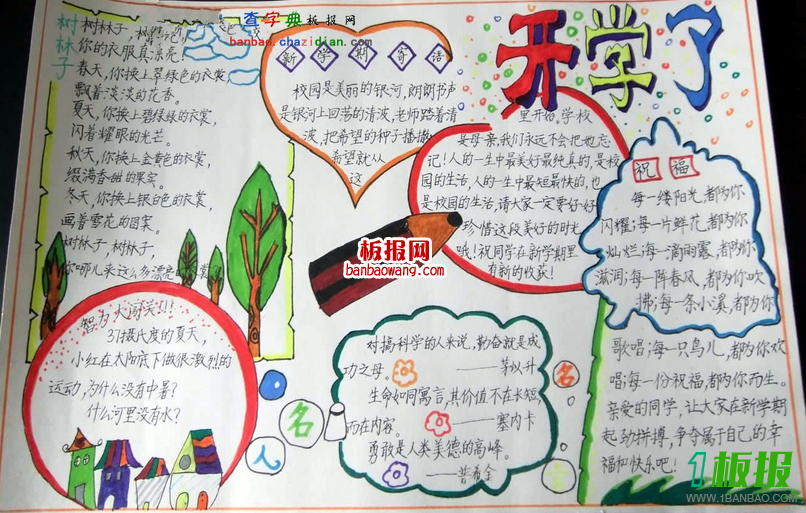 查字典 板报网
banbao.chazidian.com
开学了
树林子
树林子,树
你的衣服真漂亮!
春天,你换上翠绿色的衣裳
飘着淡淡的花香。
夏天,你换上碧绿绿的衣裳
闪着耀眼的光芒。
秋天,你换上金黄色的衣裳,
缀满香甜的果实。
冬天,你换上银白色的衣裳,
画着雪花的图案。
树林子,树林子,
你哪儿来这么多漂亮的衣裳
新学期寄语
校园是美丽的银河,朗朗书声
是银河上回荡的清波,老师踏着清
波,把希望的种子播撒
希望就从
这
里开始,学校
是母亲,我们永远不会把她忘
记!人的一生中最美好最纯真的,是校
园的生活,人的一生中最短最快的,也
是校园的生活,请大家一定要好好
珍惜这段美好的时光
哦!祝同学在新学期里
有新的收获!
祝福
每一缕阳光,都为你
闪耀;每一片鲜花,都为你
灿烂;每一滴雨露,都为你
滋润;每一阵春风,都为你吹
拂;每一条小溪,都为你
歌唱;每一只鸟儿,都为你欢
唱;每一份祝福,都为你而生。
亲爱的同学,让大家在新学期
起劲拼搏,争夺属于自己的幸
福和快乐吧!
板报网
banbaowang.com
智力大闯关!!!
37摄氏度的夏天,
小红在太阳底下做很激烈的
运动,为什么没有中暑?
什么河里没有水?
名人
对搞科学的人来说,勤奋就是成
功之母。
——茅以升
生命如同寓言,其价值不在长短,
而在内容。
——塞内卡
勇敢是人类美德的高峰。
——普希金
名
言
1板报
WWW.1BANBAO.COM